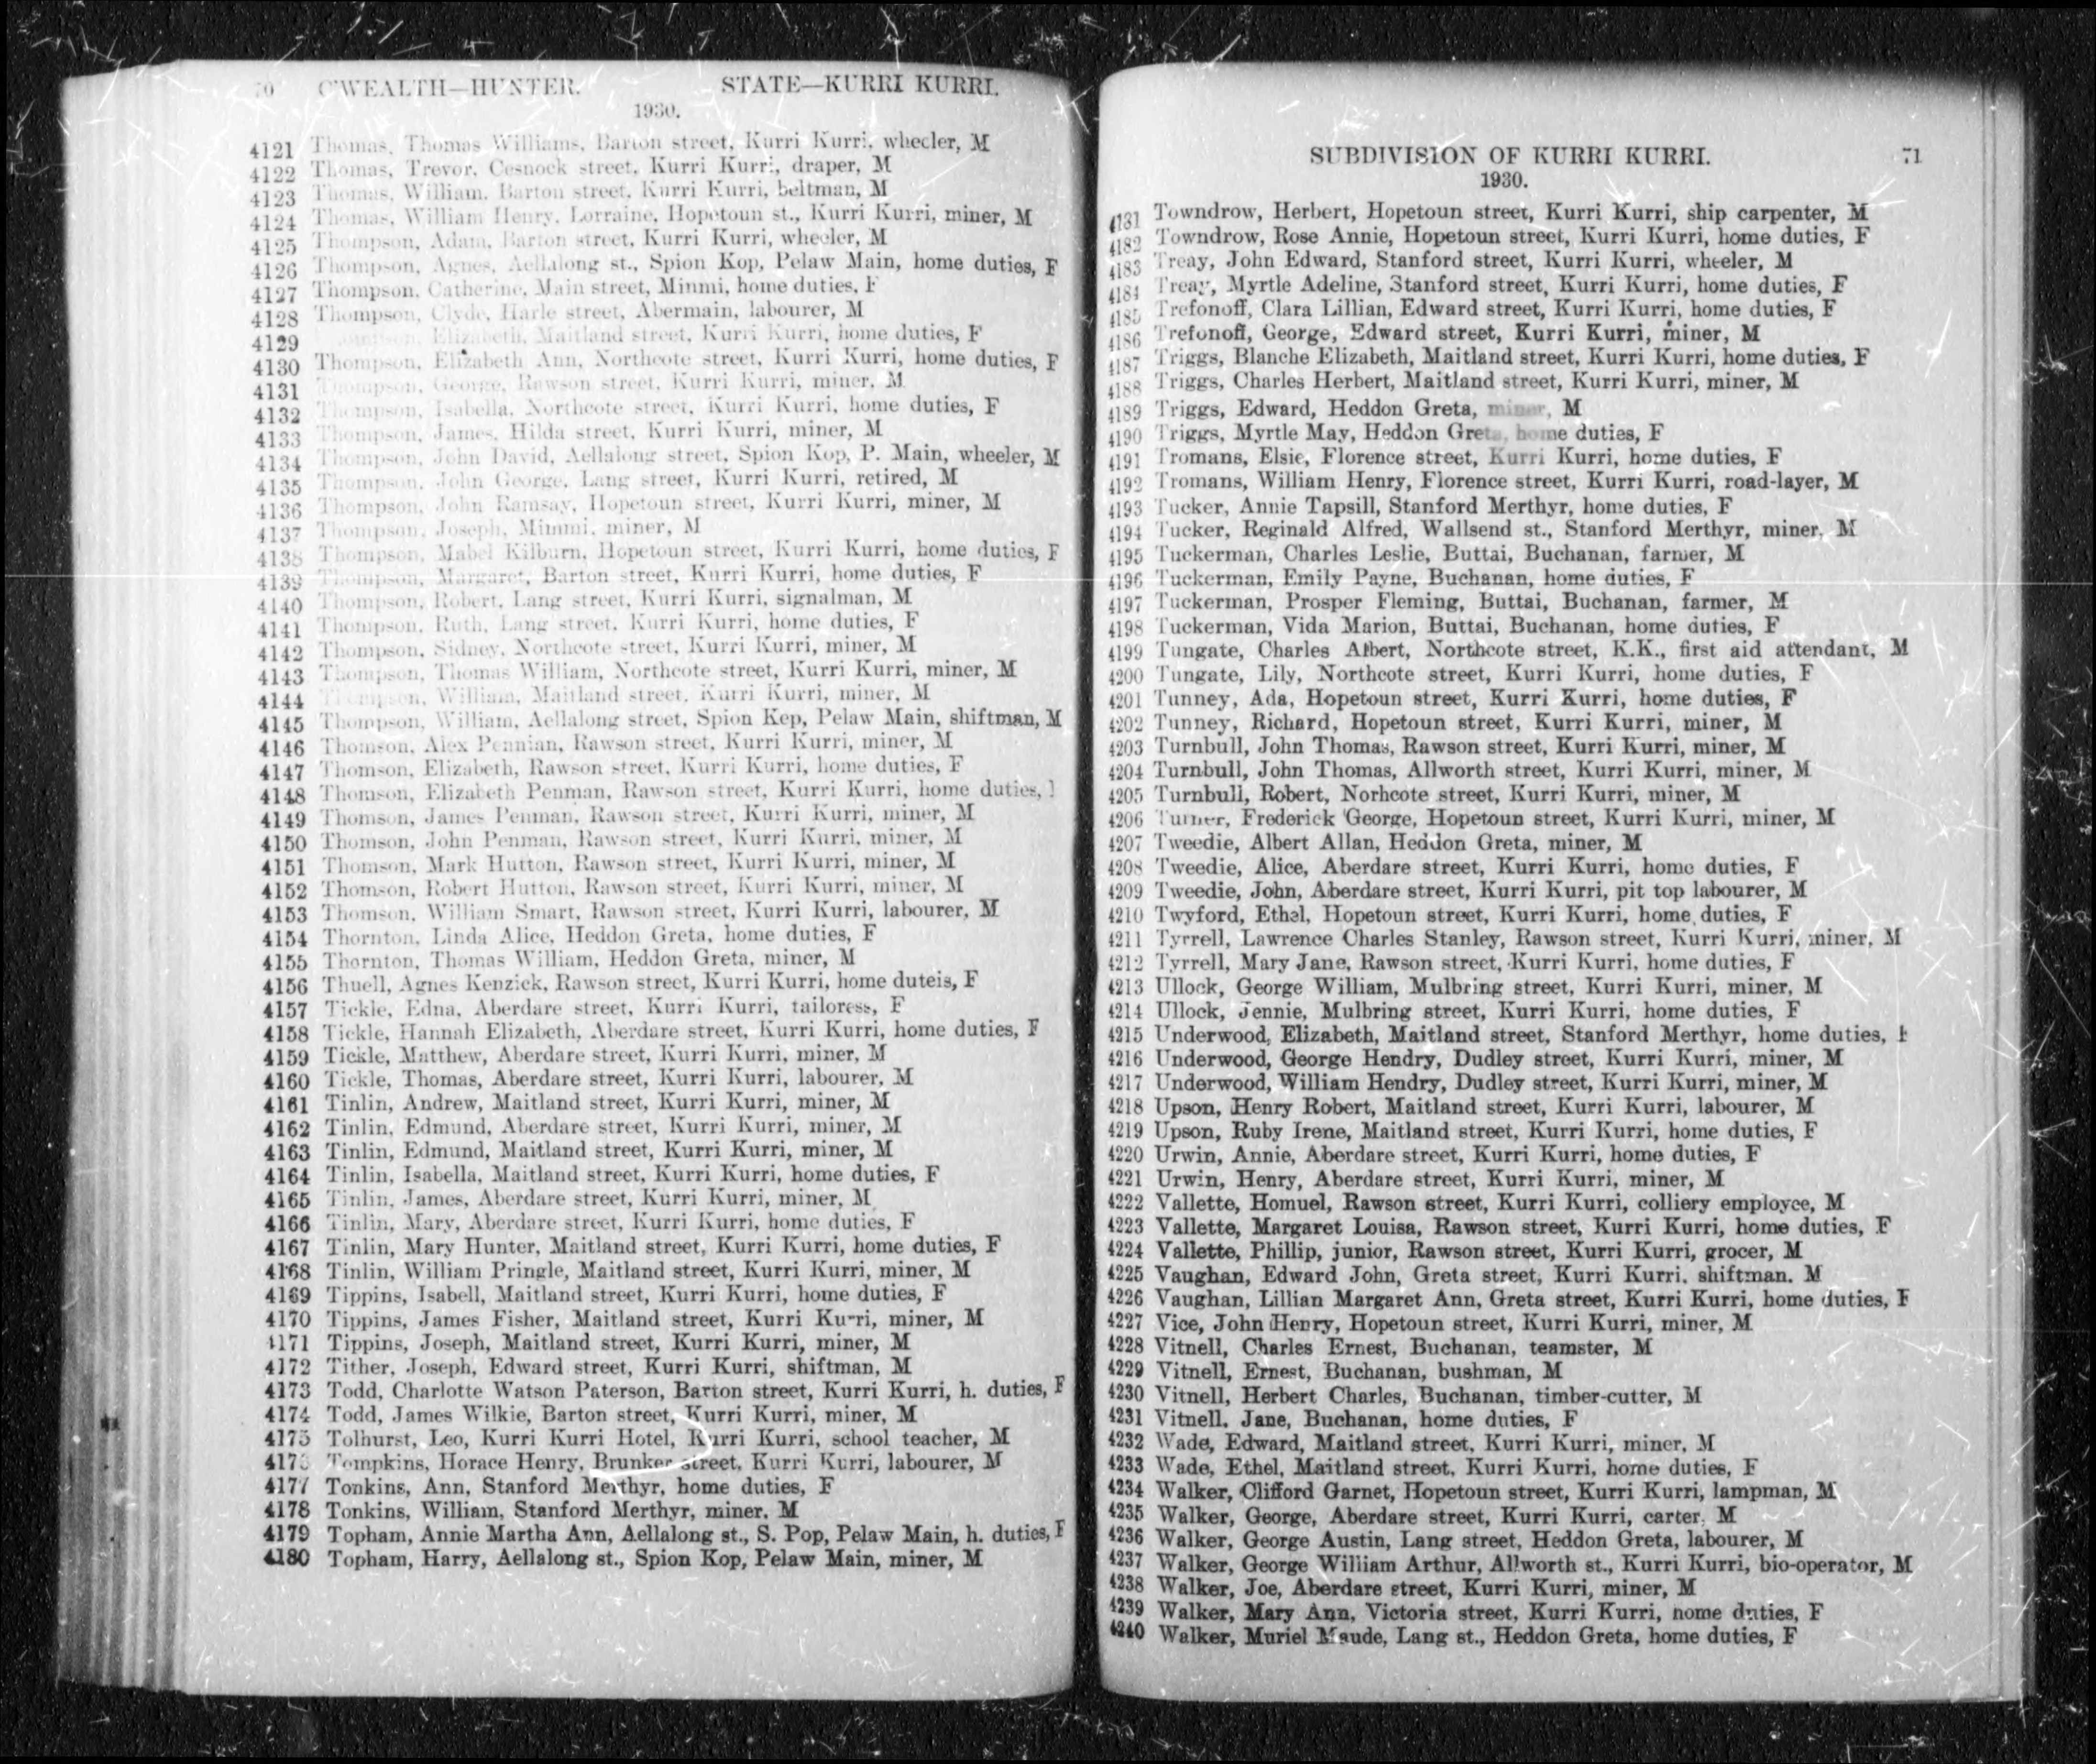 70 C'WEALTH—HUNTER. STATE—KURRI KURRI.
1930.
4121 Thomas, Thomas Williams, Barton street, Kurri Kurri, wheeler, M
4122 Thomas, Trevor, Cesnock street, Kurri Kurri, draper, M
4123 Thomas, William, Barton street, Kurri Kurri, beltman, M
4124 Thomas, William Henry, Lorraine, Hopetoun st., Kurri Kurri, miner, M
4125 Thompson, Adam, Barton street, Kurri Kurri, wheeler, M
4126 Thompson, Agnes, Aellalong st., Spion Kop, Pelaw Main, home duties, F
4127 Thompson, Catherine, Main street, Minmi, home duties, F
4128 Thompson, Clyde, Harle street, Abermain, labourer, M
4129 Thompson, Elizabeth, Maitland street, Kurri Kurri, home duties, F
4130 Thompson, Elizabeth Ann, Northcote street, Kurri Kurri, home duties, F
4131 Thompson, George, Rawson street, Kurri Kurri, miner, M
4132 Thompson, Isabella, Northcote street, Kurri Kurri, home duties, F
4133 Thompson, James, Hilda street, Kurri Kurri, miner, M
4134 Thompson, John David, Aellalong street, Spion Kop, P. Main, wheeler, M
4135 Thompson, John George, Lang street, Kurri Kurri, retired, M
4136 Thompson, John Ramsay, Hopetoun street, Kurri Kurri, miner, M
4137 Thompson, Joseph, Minmi, miner, M
4138 Thompson, Mabel Kilburn, Hopetoun street, Kurri Kurri, home duties, F
4139 Thompson, Margaret, Barton street, Kurri Kurri, home duties, F
4140 Thompson, Robert, Lang street, Kurri Kurri, signalman, M
4141 Thompson, Ruth, Lang street, Kurri Kurri, home duties, F
4142 Thompson, Sidney, Northcote street, Kurri Kurri, miner, M
4143 Thompson, Thomas William, Northcote street, Kurri Kurri, miner, M
4144 Thompson, William, Maitland street, Kurri Kurri, miner, M
4145 Thompson, William, Aellalong street, Spion Kop, Pelaw Main, shiftman, M
4146 Thomson, Alex Pennian, Rawson street, Kurri Kurri, miner, M
4147 Thomson, Elizabeth, Rawson street, Kurri Kurri, home duties, F
4148 Thomson, Elizabeth Penman, Rawson street, Kurri Kurri, home duties,
4149 Thomson, James Penman, Rawson street, Kurri Kurri, miner, M
4150 Thomson, John Penman, Rawson street, Kurri Kurri, miner, M
4151 Thomson, Mark Hutton, Rawson street, Kurri Kurri, miner, M
4152 Thomson, Robert Hutton, Rawson street, Kurri Kurri, miner, M
4153 Thomson, William Smart, Rawson street, Kurri Kurri, labourer, M
4154 Thornton, Linda Alice, Heddon Greta, home duties, F
4155 Thornton, Thomas William, Heddon Greta, miner, M
4156 Thuell, Agnes Kenzick, Rawson street, Kurri Kurri, home duteis, F
4157 Tickle, Edna, Aberdare street, Kurri Kurri, tailoress, F
4158 Tickle, Hannah Elizabeth, Aberdare street, Kurri Kurri, home duties, F
4159 Tickle, Matthew, Aberdare street, Kurri Kurri, miner, M
4160 Tickle, Thomas, Aberdare street, Kurri Kurri, labourer, M
4161 Tinlin, Andrew, Maitland street, Kurri Kurri, miner, M
4162 Tinlin, Edmund, Aberdare street, Kurri Kurri, miner, M
4163 Tinlin, Edmund, Maitland street, Kurri Kurri, miner, M
4164 Tinlin, Isabella, Maitland street, Kurri Kurri, home duties, F
4165 Tinlin, James, Aberdare street, Kurri Kurri, miner, M
4166 Tinlin, Mary, Aberdare street, Kurri Kurri, home duties, F
4167 Tinlin, Mary Hunter, Maitland street, Kurri Kurri, home duties, F
4168 Tinlin, William Pringle, Maitland street, Kurri Kurri, miner, M
4169 Tippins, Isabell, Maitland street, Kurri Kurri, home duties, F
4170 Tippins, James Fisher, Maitland street, Kurri Kurri, miner, M
4171 Tippins, Joseph, Maitland street, Kurri Kurri, miner, M
4172 Tither, Joseph, Edward street, Kurri Kurri, shiftman, M
4173 Todd, Charlotte Watson Paterson, Barton street, Kurri Kurri, h. duties, F
4174 Todd, James Wilkie, Barton street, Kurri Kurri, miner, M
4175 Tolhurst, Leo, Kurri Kurri Hotel, Kurri Kurri, school teacher, M
4176 Tompkins, Horace Henry, Brunker street, Kurri Kurri, labourer, M
4177 Tonkins, Ann, Stanford Merthyr, home duties, F
4178 Tonkins, William, Stanford Merthyr, miner, M
4179 Topham, Annie Martha Ann, Aellalong st., S. Pop, Pelaw Main, h. duties, F
4180 Topham, Harry, Aellalong st., Spion Kop, Pelaw Main, miner, M
SUBDIVISION OF KURRI KURRI. 71
1930.
4181 Towndrow, Herbert, Hopetoun street, Kurri Kurri, ship carpenter, M
4182 Towndrow, Rose Annie, Hopetoun street, Kurri Kurri, home duties, F
4183 Treay, John Edward, Stanford street, Kurri Kurri, wheeler, M
4184 Treay, Myrtle Adeline, Stanford street, Kurri Kurri, home duties, F
4185 Trefonoff, Clara Lillian, Edward street, Kurri Kurri, home duties, F
4186 Trefonoff, George, Edward street, Kurri Kurri, miner, M
4187 Triggs, Blanche Elizabeth, Maitland street, Kurri Kurri, home duties, F
4188 Triggs, Charles Herbert, Maitland street, Kurri Kurri, miner, M
4189 Triggs, Edward, Heddon Greta, miner, M
4190 Triggs, Myrtle May, Heddon Greta, home duties, F
4191 Tromans, Elsie, Florence street, Kurri Kurri, home duties, F
4192 Tromans, William Henry, Florence street, Kurri Kurri, road-layer, M
4193 Tucker, Annie Tapsill, Stanford Merthyr, home duties, F
4194 Tucker, Reginald Alfred, Wallsend st., Stanford Merthyr, miner, M
4195 Tuckerman, Charles Leslie, Buttai, Buchanan, farmer, M
4196 Tuckerman, Emily Payne, Buchanan, home duties, F
4197 Tuckerman, Prosper Fleming, Buttai, Buchanan, farmer, M
4198 Tuckerman, Vida Marion, Buttai, Buchanan, home duties, F
4199 Tungate, Charles Albert, Northcote street, K.K., first aid attendant, M
4200 Tungate, Lily, Northcote street, Kurri Kurri, home duties, F
4201 Tunney, Ada, Hopetoun street, Kurri Kurri, home duties, F
4202 Tunney, Richard, Hopetoun street, Kurri Kurri, miner, M
4203 Turnbull, John Thomas, Rawson street, Kurri Kurri, miner, M
4204 Turnbull, John Thomas, Allworth street, Kurri Kurri, miner, M
4205 Turnbull, Robert, Norhcote street, Kurri Kurri, miner, M
4206 Turner, Frederick George, Hopetoun street, Kurri Kurri, miner, M
4207 Tweedie, Albert Allan, Heddon Greta, miner, M
4208 Tweedie, Alice, Aberdare street, Kurri Kurri, home duties, F
4209 Tweedie, John, Aberdare street, Kurri Kurri, pit top labourer, M
4210 Twyford, Ethel, Hopetoun street, Kurri Kurri, home duties, F
4211 Tyrrell, Lawrence Charles Stanley, Rawson street, Kurri Kurri, miner, M
4212 Tyrrell, Mary Jane, Rawson street, Kurri Kurri, home duties, F
4213 Ullock, George William, Mulbring street, Kurri Kurri, miner, M
4214 Ullock, Jennie, Mulbring street, Kurri Kurri, home duties, F
4215 Underwood, Elizabeth, Maitland street, Stanford Merthyr, home duties, F
4216 Underwood, George Hendry, Dudley street, Kurri Kurri, miner, M
4217 Underwood, William Hendry, Dudley street, Kurri Kurri, miner, M
4218 Upson, Henry Robert, Maitland street, Kurri Kurri, labourer, M
4219 Upson, Ruby Irene, Maitland street, Kurri Kurri, home duties, F
4220 Urwin, Annie, Aberdare street, Kurri Kurri, home duties, F
4221 Urwin, Henry, Aberdare street, Kurri Kurri, miner, M
4222 Vallette, Homuel, Rawson street, Kurri Kurri, colliery employee, M
4223 Vallette, Margaret Louisa, Rawson street, Kurri Kurri, home duties, F
4224 Vallette, Phillip, junior, Rawson street, Kurri Kurri, grocer, M
4225 Vaughan, Edward John, Greta street, Kurri Kurri. shiftman. M
4226 Vaughan, Lillian Margaret Ann, Greta street, Kurri Kurri, home duties, F
4227 Vice, John Henry, Hopetoun street, Kurri Kurri, miner, M
4228 Vitnell, Charles Ernest, Buchanan, teamster, M
4229 Vitnell, Ernest, Buchanan, bushman, M
4230 Vitnell, Herbert Charles, Buchanan, timber-cutter, M
4231 Vitnell, Jane, Buchanan, home duties, F
4232 Wade, Edward, Maitland street, Kurri Kurri, miner, M
4233 Wade, Ethel, Maitland street, Kurri Kurri, home duties, F
4234 Walker, Clifford Garnet, Hopetoun street, Kurri Kurri, lampman, M
4235 Walker, George, Aberdare street, Kurri Kurri, carter, M
4236 Walker, George Austin, Lang street, Heddon Greta, labourer, M
4237 Walker, George William Arthur, Allworth st., Kurri Kurri, bio-operator, M
4238 Walker, Joe, Aberdare street, Kurri Kurri, miner, M
4239 Walker, Mary Ann, Victoria street, Kurri Kurri, home duties, F
4240 Walker, Muriel Maude, Lang st., Heddon Greta, home duties, F